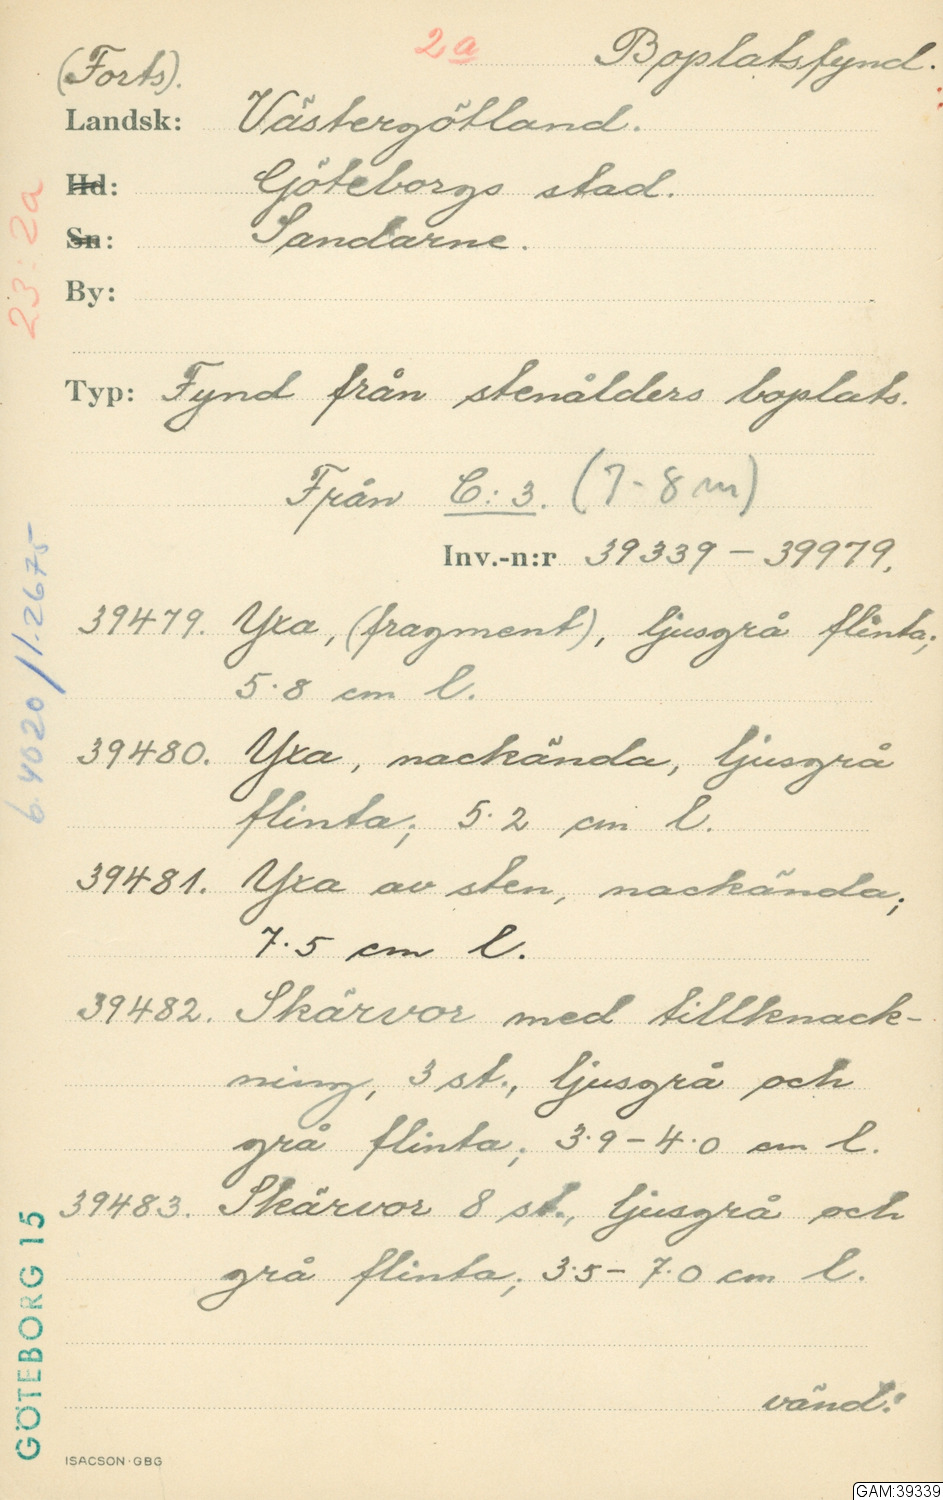 2a Boplatsfynd.
(Forts).
Landsk: Västergötland.
Hd: Göteborgs stad.
Sn: Sandarne.
By:
Typ: Fynd från stenålders boplats.
Från C:3. (7-8 m)
Inv.-n:r 39339 – 39979.
39479. Yxa, (fragment), ljusgrå flinta;
5.8 cm l.
39480. Yxa, nackända, ljusgrå
flinta; 5.2 cm l.
39481. Yxa av sten, nackända;
7.5 cm l.
39482. Skärvor med tillknack-
ning, 3 st., ljusgrå och
grå flinta; 3.9 – 4.0 cm l.
39483. Skärvor 8 st., ljusgrå och
grå flinta; 3.5 – 7.0 cm l.
vänd!
23:2a
6.4020/1.2675
GÖTEBORG 15
ISACSON·GBG
GAM:39339